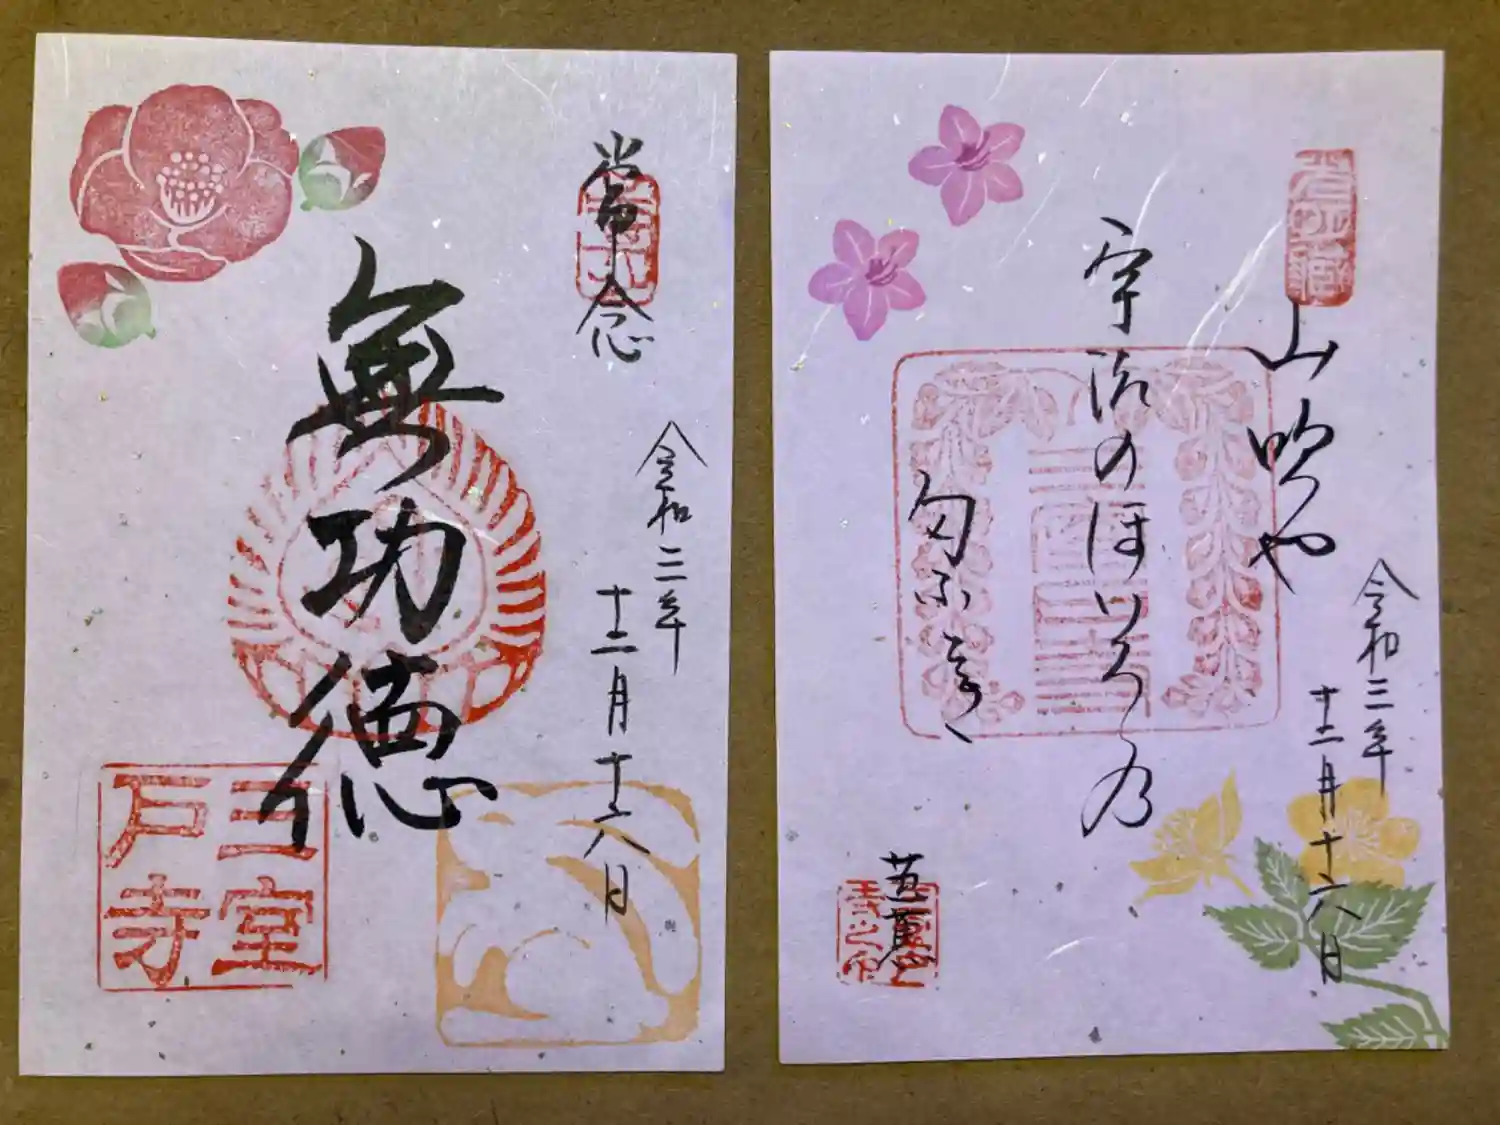 常念
令和三年
十二月十六日
無功徳
三室
戸寺
山吹や
宇治のほいろ乃
匂ふ
芭蕉
令和三年
十二月十六日